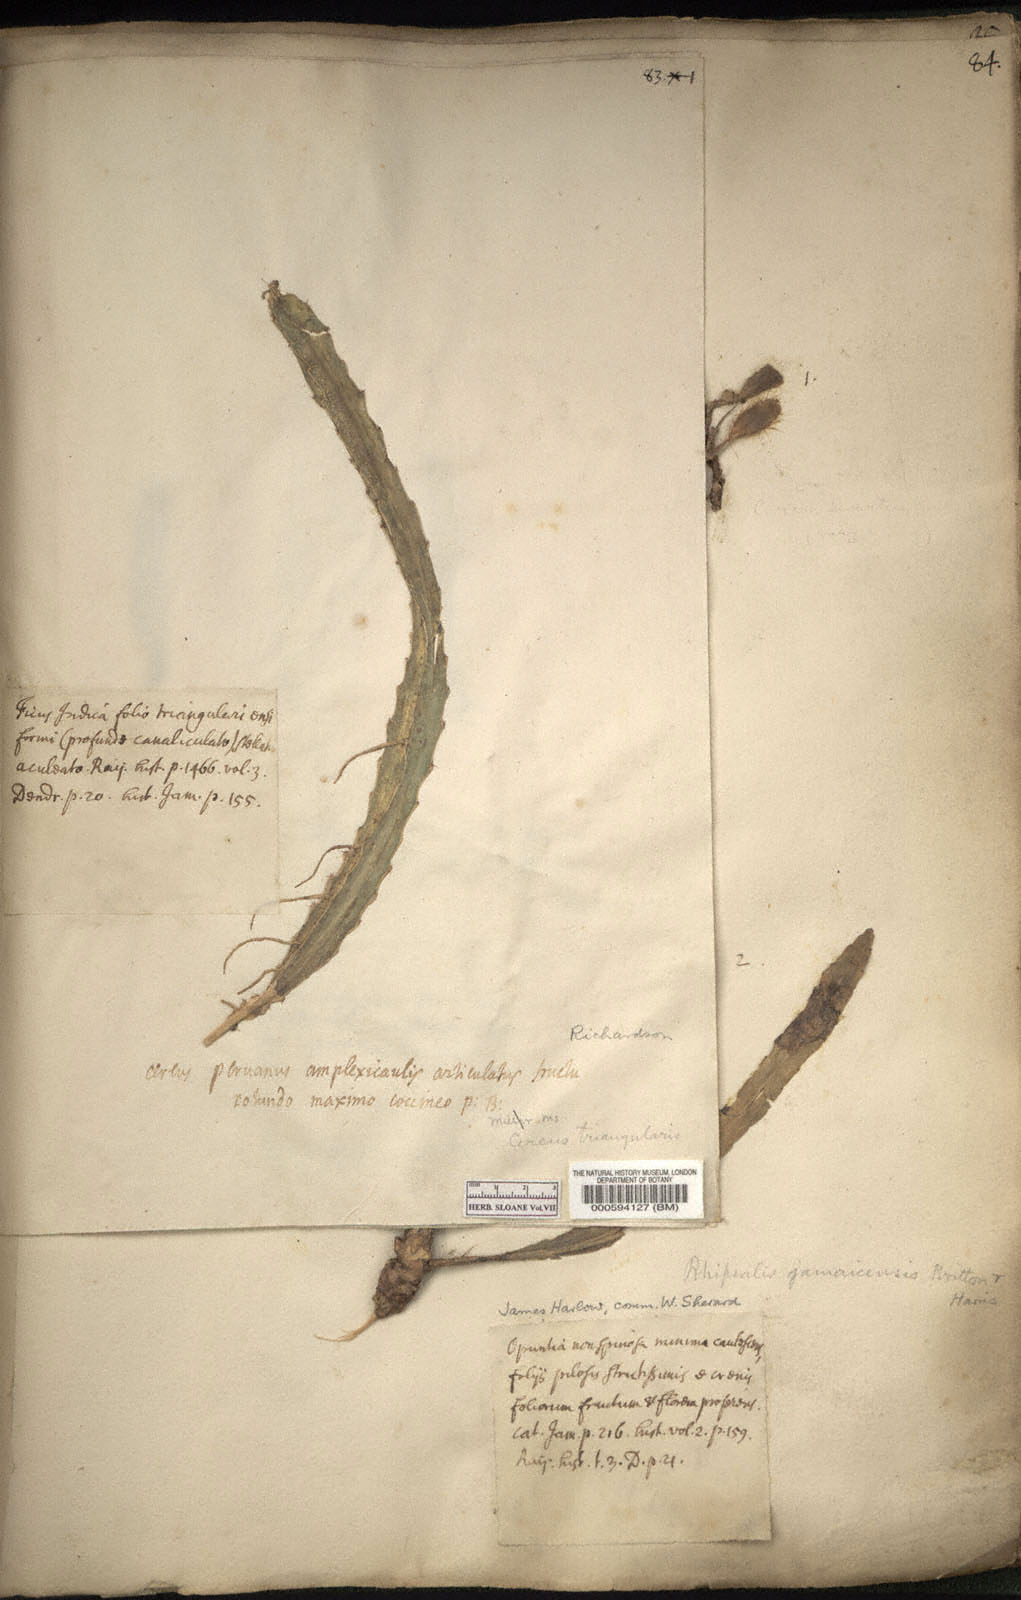 84.
83 1
1.
Ficus Indica folio triangulari ensi
formi (profunde canaliculato)
aculeato. Raij. hist. p. 1466. vol. 3.
Dendr. p. 20. hist. Jam. p. 155.
2.
Richardson
cereus peruanus amplexicaulis articulatus fructu
rotundo maximo coccineo p: B:
ms.
Cereus triangularis
THE NATURAL HISTORY MUSEUM, LONDON
DEPARTMENT OF BOTANY
000594127 (BM)
HERB. SLOANE Vol. VII
Rhipsalis jamaicensis Britton &
Harris
James Harlow, comm. W. Sherard
Opuntia non spinosa minima caulescens,
folijs pilosis strictissimis e crenis
foliorum fructum & florem proferens.
Cat. Jam. p. 216. hist. vol. 2. p. 159.
Raij. hist. t. 3. D. p. 21.